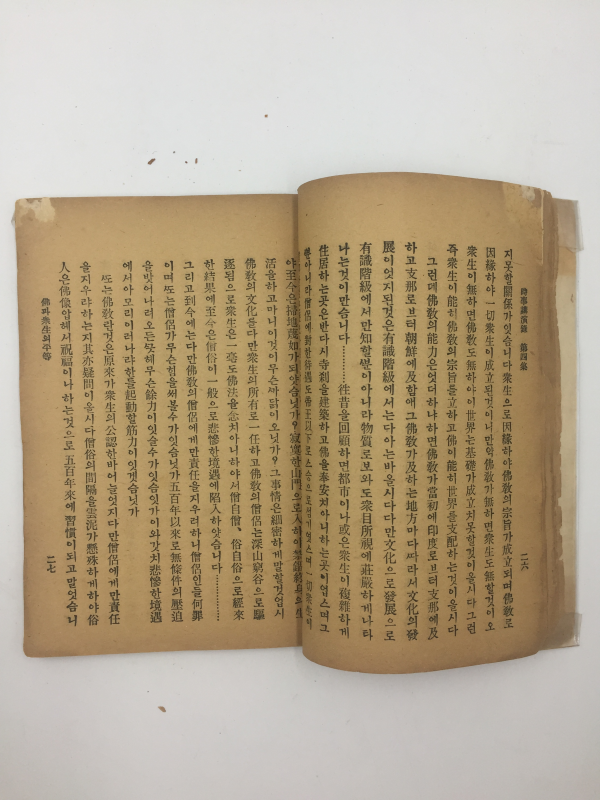 時事講演錄 第四集
지못할關係가잇슴니다衆生으로因緣하야佛敎의宗旨가成立되며佛敎로
因緣하야一切衆生이成立된것이니만약佛敎가無하면衆生도無할것이오
衆生이無하면佛敎도無하야이世界는基礎가成立치못할것이올시다그런
즉衆生이能히佛敎의宗旨를立하고佛이能히世界를支配하는것이올시다
그런데佛敎의能力은엇더하냐하면佛敎가當初에印度로브터支那에及
하고支那로브터朝鮮에及함에그佛敎가及하는地方마다따라서文化의發
展이엇지된것은有識階級에서는다아는바올시다다만文化으로發展으로
有識階級에서만知할뿐이아니라物質로보와도衆目所視에莊嚴하게나타
나는것이만슴니다…………往昔을回顧하면都市이나或은衆生이複雜하게
住居하는곳은반다시寺刹을建築하고佛을奉安치아니하는곳이업스며
二六
야至今은掃地蔑如가되얏슴닛가?寂寞한山門으로
活을하고마니이것이무슨싸닭이오닛가?그事情은細密하게말할것업시
佛敎의文化를다만衆生의所有로一任하고佛敎의僧侶는深山窮谷으로驅
逐됨으로衆生은一毫도佛法을念치아니하야서僧自僧、俗自俗으로經來
한結果에至今은僧俗이一般으로悲慘한境遇에陷入하얏슴니다…………
그리고到今에는다만佛敎의僧侶에게만責任을지우려하니僧侶인들何罪
이며또는僧侶가무슨힘을써볼수가잇슴닛가五百年以來로無條件의壓迫
을밧어나려오든터헤무슨餘力이잇슬수가잇슴잇가이와갓치悲慘한境遇
에서아모리이러나랴한들起動할筋力이잇겟슴닛가
또는佛敎란것은原來가衆生의公認한바어늘엇지다만僧侶에게만責任
을지우랴하는지其亦疑問이올시다僧俗의間隔을雲泥가懸殊하게하야俗
人은佛像압헤서祝福이나하는것으로五百年來에習慣이되고말엇슴니
佛과衆生의平等
二七